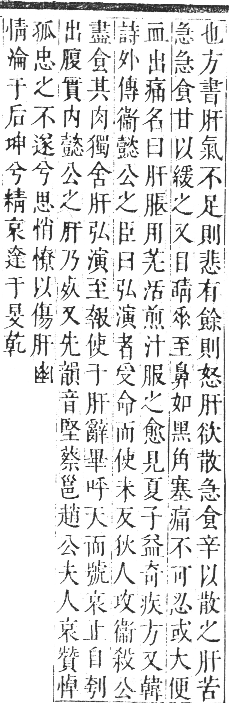 也方書肝氣不足則悲有餘則怒肝欲散急食辛以散之肝苦
急急食甘以緩之又目睛垂至鼻如黑角塞痛不可忍或大便
血出痛名曰肝脹用羌活煎汁服之愈見夏子益奇疾方又韓
詩外傳衞懿公之臣曰弘演者受命而使未反狄人攻衞殺公
盡食其肉獨舍肝弘演至報使于肝辭畢呼天而號哀止自刳
出腹實内懿公之肝乃㱙又先韻音堅蔡邕趙公夫人哀贊悼
孤忠之不遂兮思悄憭以傷肝幽
情淪于后坤兮精哀達于旻乾